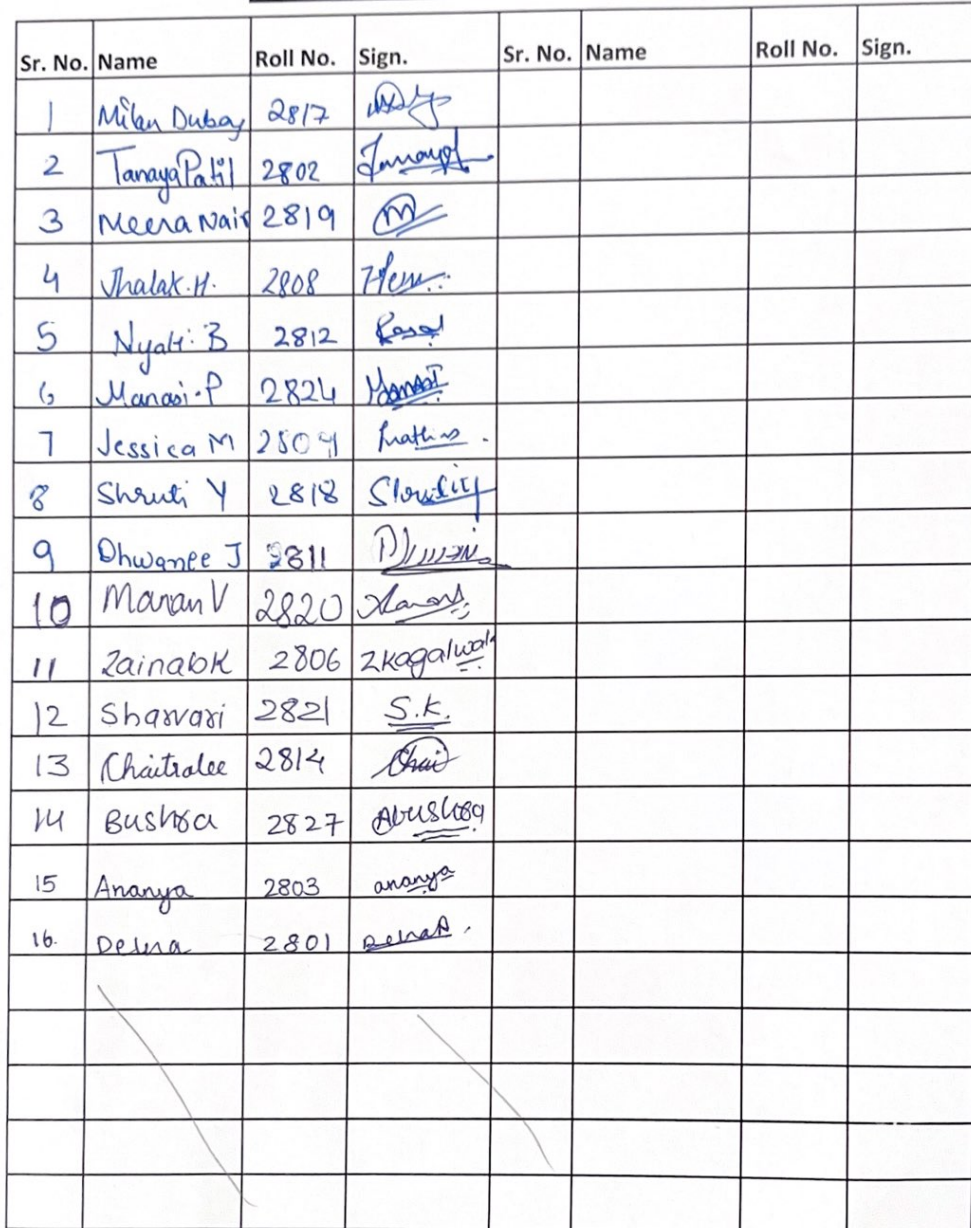 Sr. No. Name Roll No. Sign. Sr. No. Name Roll No. Sign.
1 Milan Dubay 2817
2 Tanaya Patil 2802
3 Meera Nair 2819 M
4 Jhalak.H. 2808
5 Nyati B 2812
6 Manasi.P 2824 Manasi
7 Jessica M 2809
8 Shruti Y 2818
9 Dhwanee J 2811
10 Manan V 2820
11 Zainab K 2806 Zkagalwala
12 Sharvari 2821 S.K.
13 Chaitralee 2814 Chai
14 Bushra 2827 Abushra
15 Ananya 2803 ananya
16. Delna 2801